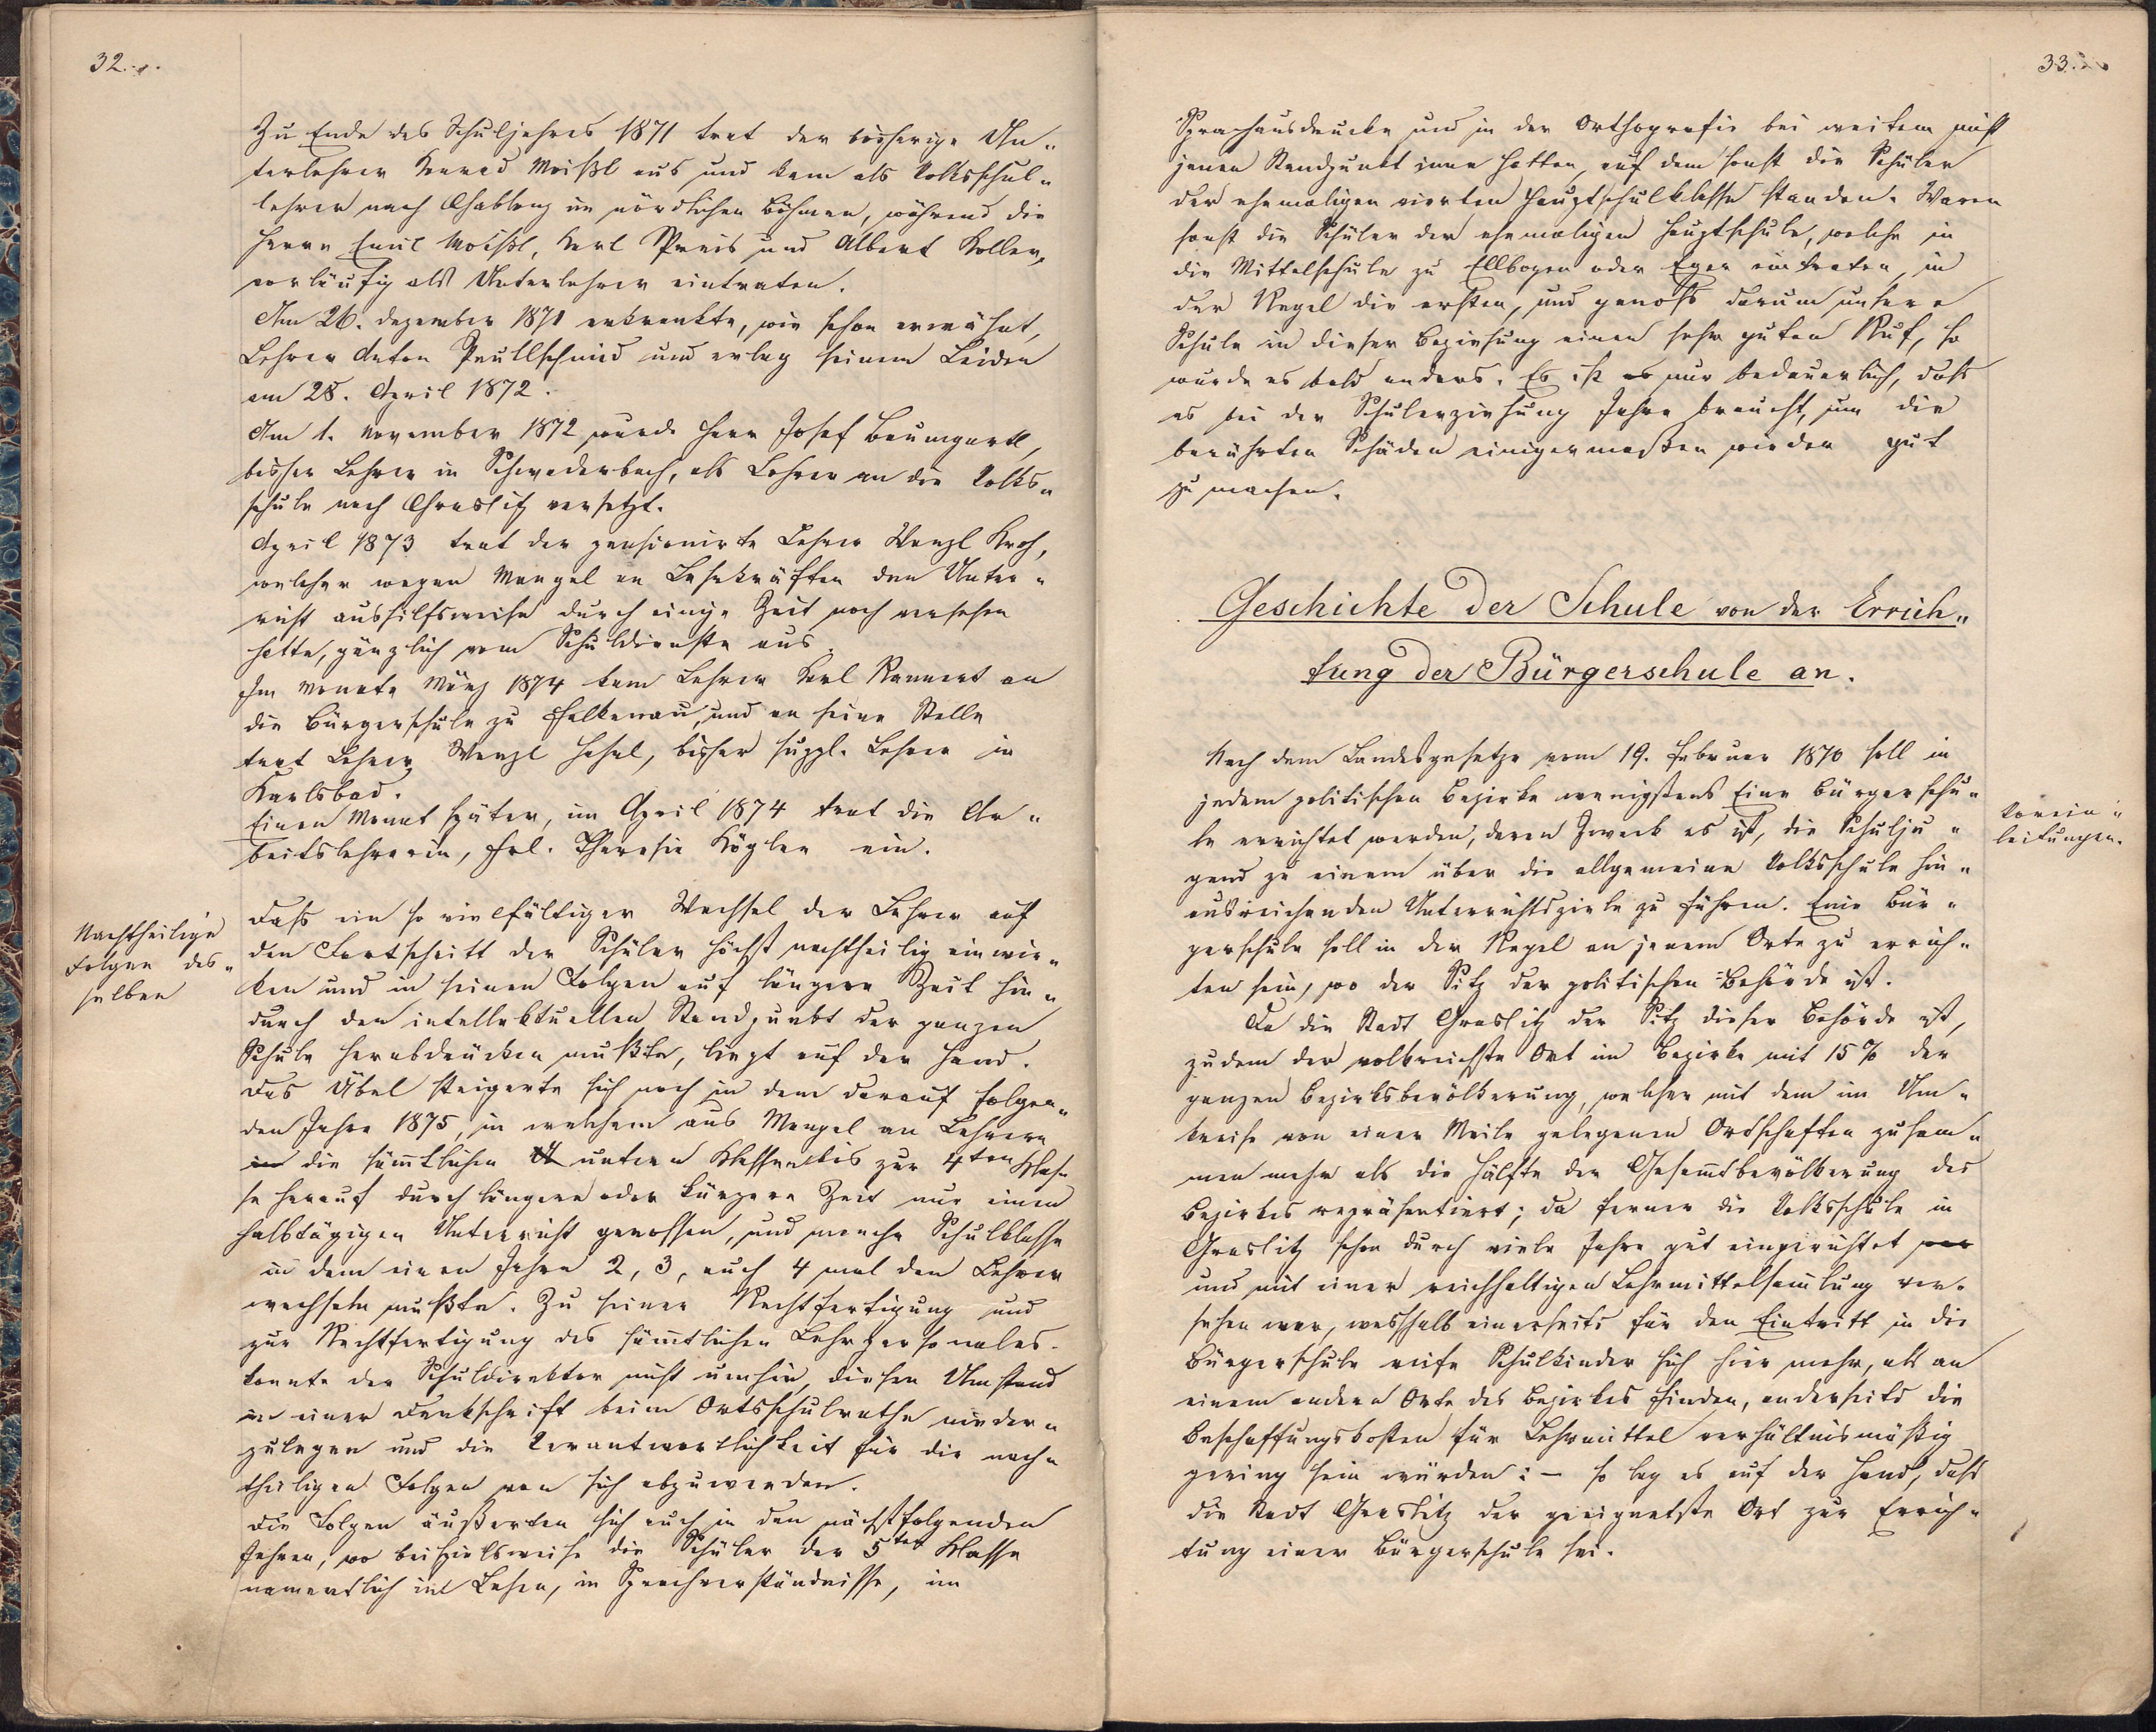 32.
Zu Ende des Schuljahres 1871 trat der bisherige Un„
terlehrer Konrad Moißl aus und kam als Volksschul„
lehrer nach Gablonz im nördlichen Böhmen, während die
Herrn Emil Moißl, Karl Preis und Albert Koller,
vorläufig als Unterlehrer eintraten.
Am 26. Dezember 1871 erkrankte, wie schon erwähnt,
Lehrer Anton Preitlschmid und erlag seinem Leiden
am 28. April 1872.
Am 1. November 1872 wurde Herr Josef Baumgartl,
bisher Lehrer in Schwaderbach, als Lehrer an die Volks„
schule nach Graslitz versetzt.
April 1873 trat der pensionirte Lehrer Wenzl Kroh,
welcher wegen Mangel an Lehrkräften den Unter„
richt aushilfsweise durch einige Zeit noch versehen
hatte, gänzlich vom Schuldienste aus.
Im Monate März 1874 kam Lehrer Karl Rennert an
die Bürgerschule zu Falkenau, und an seine Stelle
trat Lehrer Wenzl Hahal, bisher suppl. Lehrer in
Karlsbad.
Einen Monat später, im April 1874 trat die Ar„
beitslehrerin, Frl. Theresie Kögler ein.
Nachtheilige
Folgen des„
selben
Daß ein so vielfältiger Wechsel der Lehrer auf
den Fortschritt der Schüler höchst nachtheilig einwir„
ken und in seinen Folgen auf längere Zeit hin„
durch den intellektuellen Standpunkt der ganzen
Schule herabdrücken mußte, liegt auf der Hand.
Das Übel steigerte sich noch in dem darauf folgen„
den Jahre 1875, in welchem aus Mangel an Lehrern
in die sämtlichen unteren Klassen bis zur 4ten Klas„
se herauf durch längere oder kürzere Zeit nur einen
halbtägigen Unterricht genossen, und manche Schulklasse
in dem einen Jahre 2, 3, auch 4 mal den Lehrer
wechseln mußte. Zu seiner Rechtfertigung und
zur Rechtfertigung des sämtlichen Lehrpersonales
konnte der Schuldirektor nicht umhin, diesen Umstand
in einer Denkschrift beim Ortsschulrathe nieder„
zulegen und die Verantwortlichkeit für die nach„
theiligen Folgen von sich abzuwenden.
Die Folgen äußerten sich auch in den nächstfolgenden
Jahren, wo beispielsweise die Schüler der 5ten Klasse
namentlich im Lesen, im Sprachverständnisse, im
33.
Sprachausdrucke und in der Orthografie bei weitem nicht
jenen Standpunkt inne hatten, auf dem sonst die Schüler
der ehemaligen vierten Hauptschulklasse standen. Waren
sonst die Schüler der ehemaligen Hauptschule, welche in
die Mittelschule zu Ellbogen oder Eger eintraten, in
der Regel die ersten, und genoß darum unsere
Schule in dieser Beziehung einen sehr guten Ruf, so
wurde es bald anders. Es ist es nur bedauerlich, daß
es bei der Schulerziehung Jahre braucht, um die
berührten Schäden einigermaßen wieder gut
zu machen.
Geschichte der Schule von der Errich„
tung der Bürgerschule an.
Nach dem Landesgesetze vom 19. Februar 1870 soll in
jedem politischen Bezirke wenigstens Eine Bürgerschu„
le errichtet werden, deren Zweck es ist, die Schulju„
gend zu einem über die allgemeine Volksschule hin„
ausreichenden Unterrichtsziele zu führen. Eine Bür„
gerschule soll in der Regel an jenem Orte zu errich„
ten sein, wo der Sitz der politischen Behörde ist.
Vorein„
leitungen.
Da die Stadt Graslitz der Sitz dieser Behörde ist,
zudem der volkreichste Ort im Bezirke mit 15% der
ganzen Bezirksbevölkerung, welcher mit dem im Um„
kreise von einer Meile gelegenen Ortschaften zusam„
men mehr als die Hälfte der Gesamtbevölkerung des
Bezirkes repräsentiert; da ferner die Volksschule in
Graslitz schon durch viele Jahre gut eingerichtet war
und mit einer reichhaltigen Lehrmittelsamlung ver„
sehen war, weshalb einerseits für den Eintritt in die
Bürgerschule reife Schulkinder sich hier mehr, als an
einem andern Orte des Bezirkes finden, anderseits die
Beschaffungskosten für Lehrmittel verhältnismäßig
gering sein würden: – so lag es auf der Hand, daß
die Stadt Graslitz der geeignetste Ort zur Errich„
tung einer Bürgerschule sei.